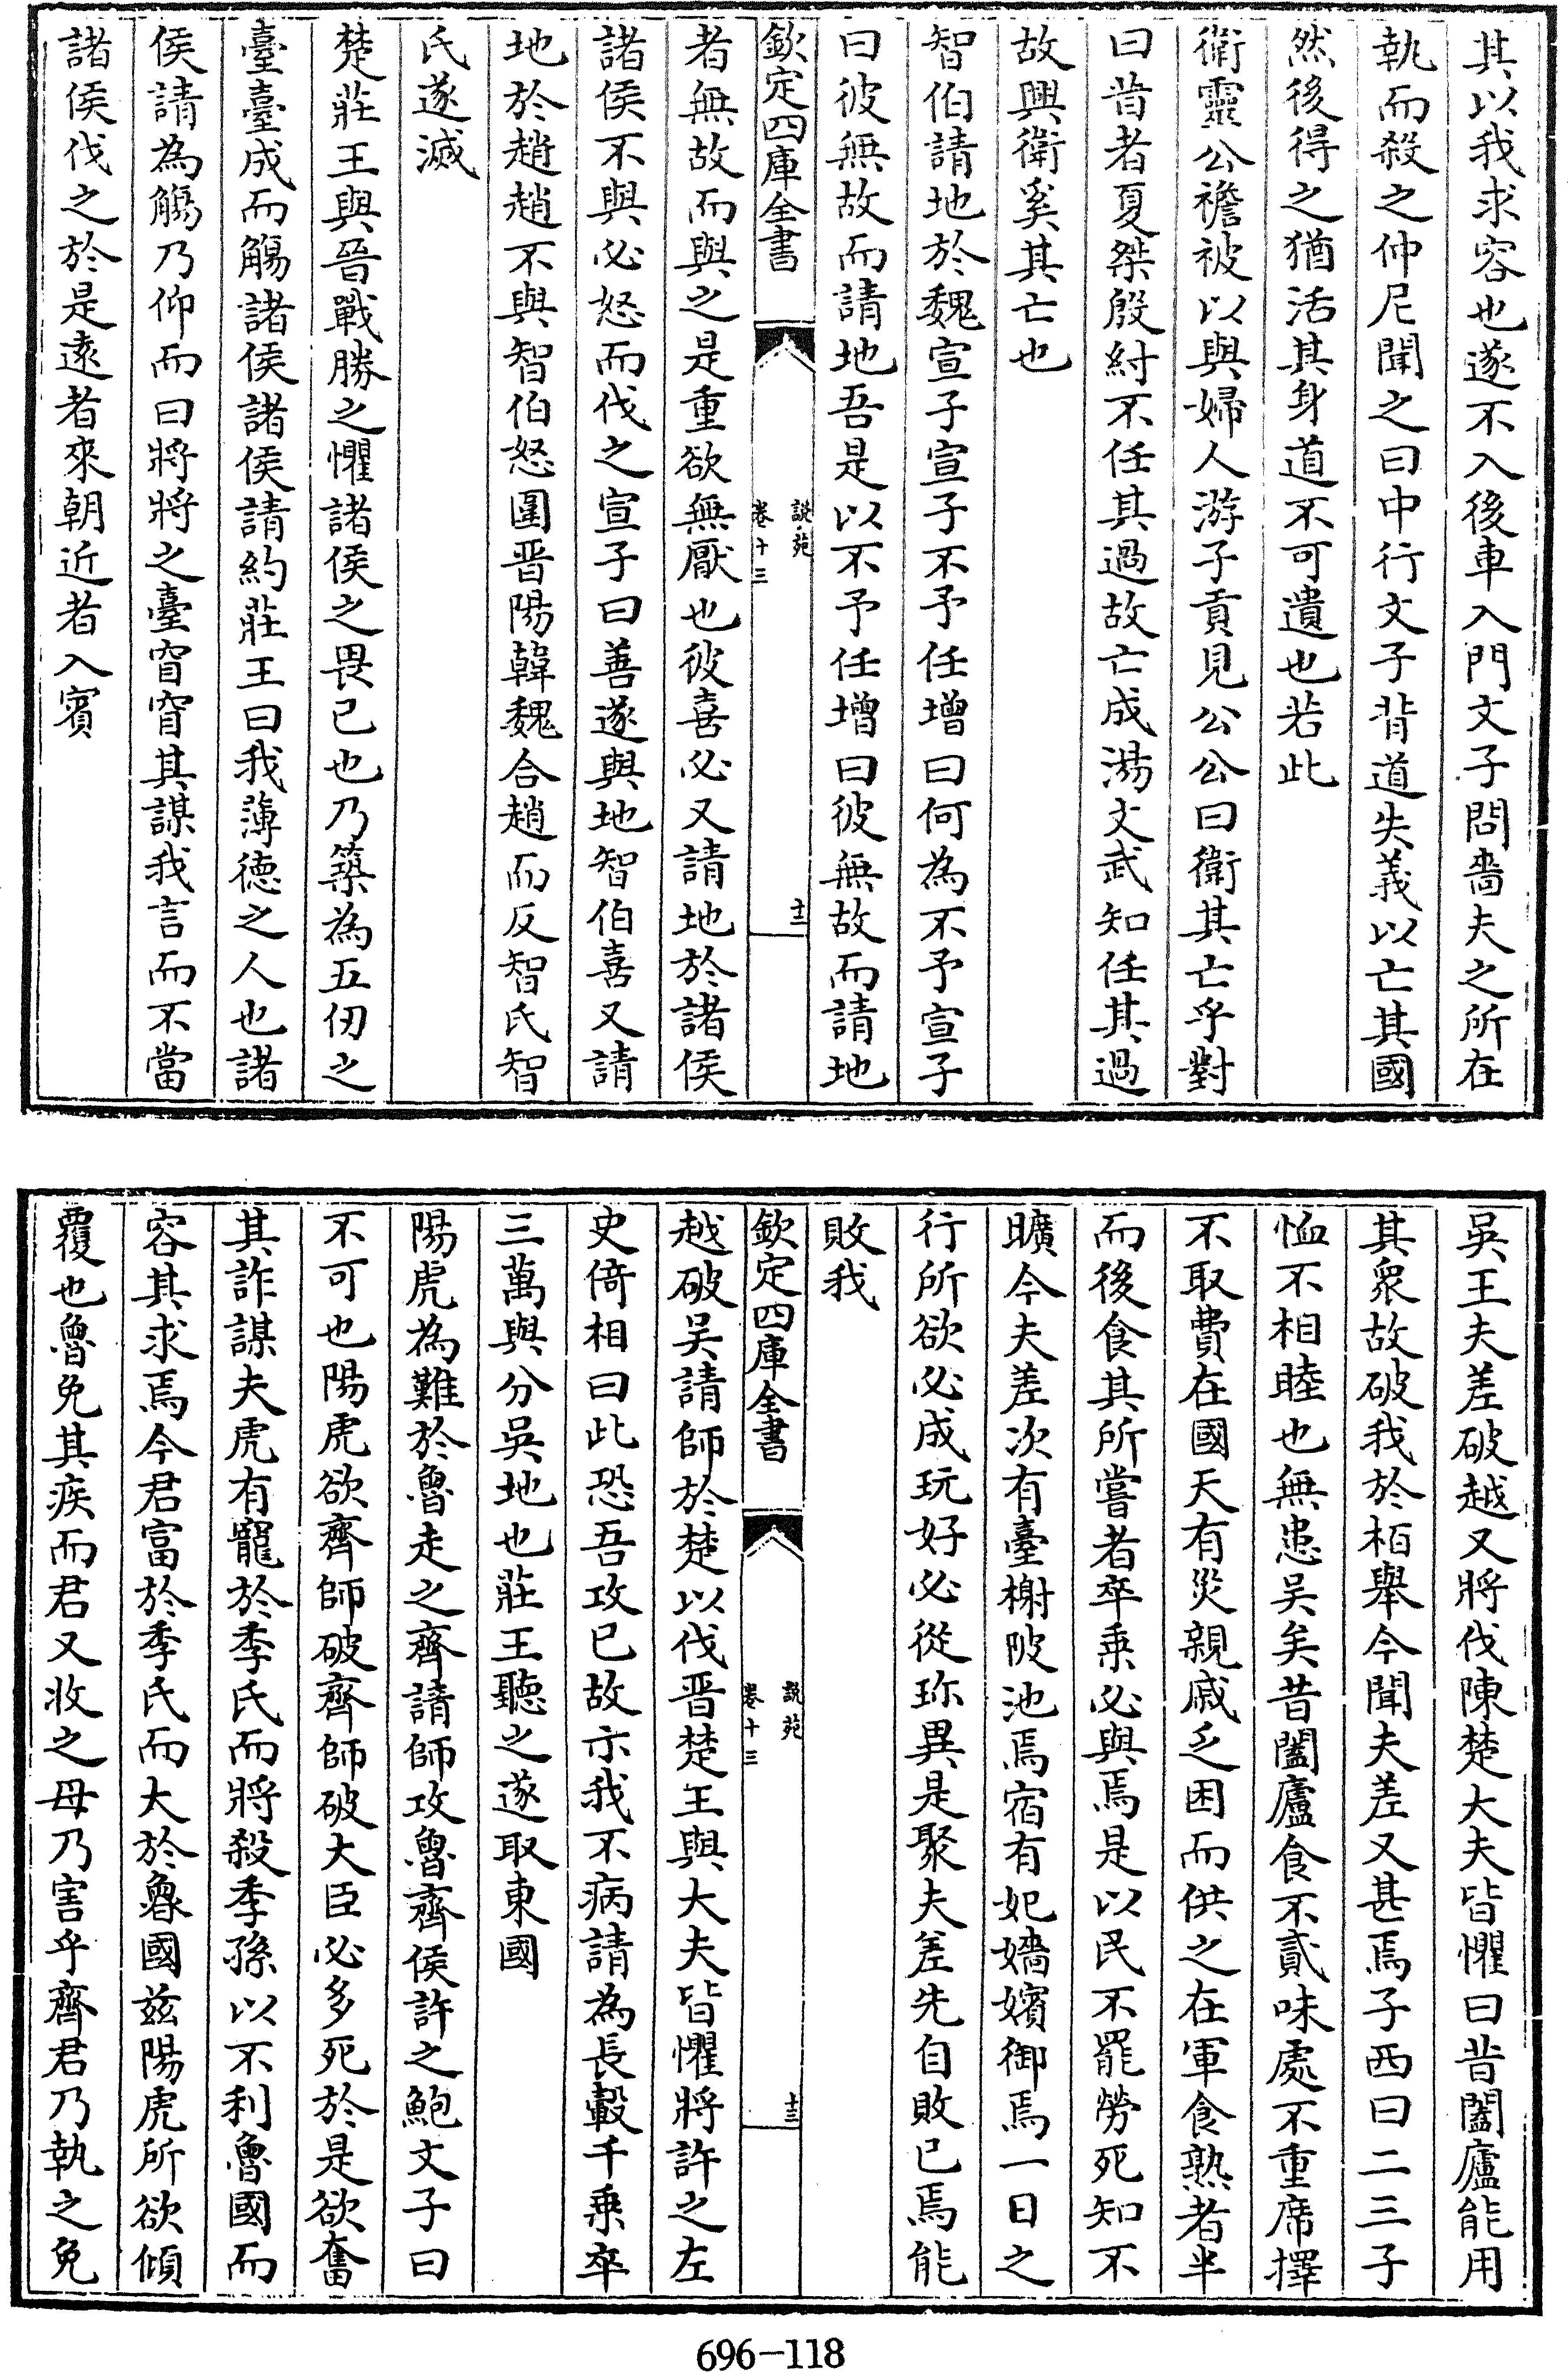 其以我求容也遂不入後車入門文子問嗇夫之所在
執而殺之仲尼聞之曰中行文子背道失義以亡其國
然後得之猶活其身道不可遺也若此
衛靈公襜被以與婦人游子貢見公公曰衛其亡乎對
曰昔者夏桀殷紂不任其過故亡成湯文武知任其過
故興衛奚其亡也
智伯請地於魏宣子宣子不予任增曰何為不予宣子
曰彼無故而請地吾是以不予任增曰彼無故而請地
欽定四庫全書
說苑
卷十三
十二
者無故而與之是重欲無厭也彼喜必又請地於諸侯
諸侯不與必怒而伐之宣子曰善遂與地智伯喜又請
地於趙趙不與智伯怒圍晋陽韓魏合趙而反智氏智
氏遂滅
楚莊王與晉戰勝之懼諸侯之畏己也乃築為五仞之
臺臺成而觴諸侯諸侯請約莊王曰我薄德之人也諸
侯請為觴乃仰而曰將將之臺窅窅其謀我言而不當
諸侯伐之於是遠者來朝近者入賓
吳王夫差破越又將伐陳楚大夫皆懼曰昔闔廬能用
其衆故破我於栢舉今聞夫差又甚焉子西曰二三子
恤不相睦也無患吳矣昔闔廬食不貳味處不重席擇
不取費在國天有災親戚乏困而供之在軍食熟者半
而後食其所嘗者卒乗必與焉是以民不罷勞死知不
曠今夫差次有臺榭陂池焉宿有妃嬙嬪御焉一日之
行所欲必成玩好必從珍異是聚夫差先自敗已焉能
敗我
欽定四庫全書
說苑
卷十三
十三
越破吳請師於楚以伐晋楚王與大夫皆懼將許之左
史倚相曰此恐吾攻已故示我不病請為長轂千乗卒
三萬與分吳地也莊王聽之遂取東國
陽虎為難於魯走之齊請師攻魯齊侯許之鮑文子曰
不可也陽虎欲齊師破齊師破大臣必多死於是欲奮
其詐謀夫虎有寵於季氏而將殺季孫以不利魯國而
容其求焉今君富於季氏而大於魯國兹陽虎所欲傾
覆也魯免其疾而君又收之毋乃害乎齊君乃執之免
696-118